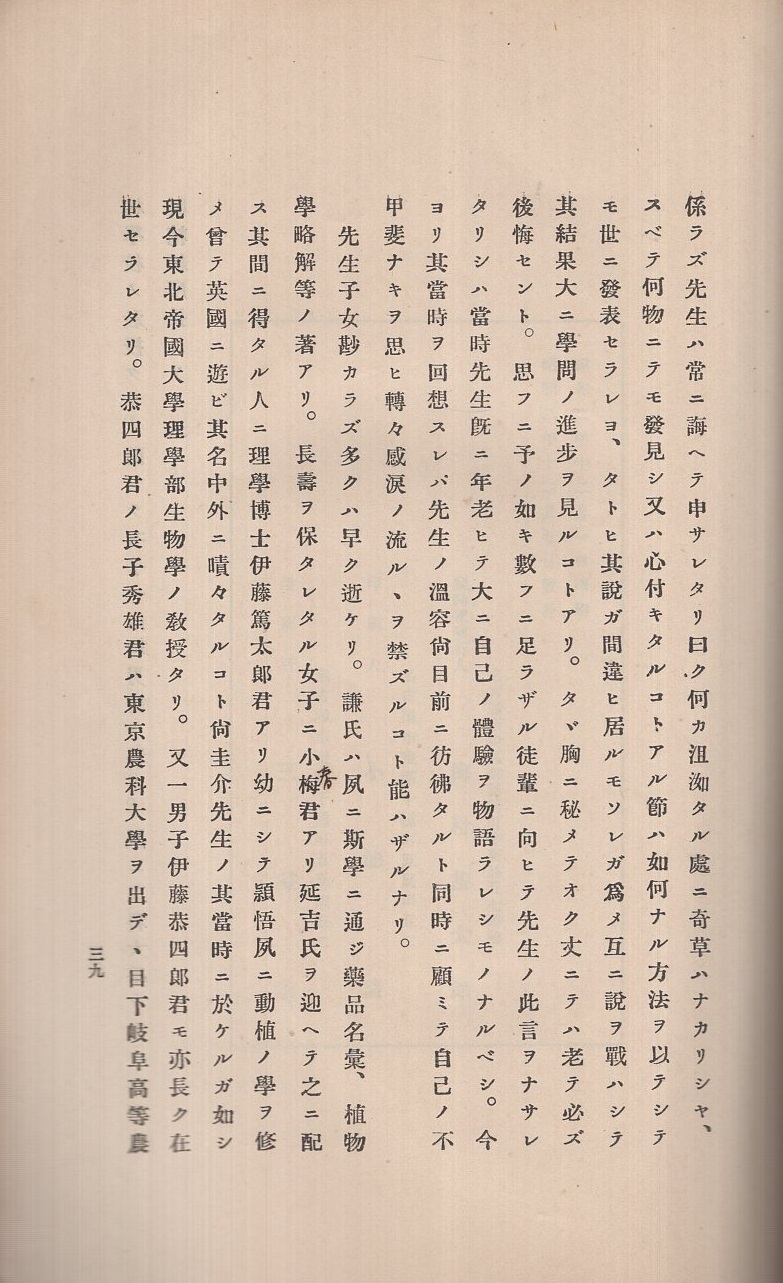 係ラズ先生ハ常ニ誨ヘテ申サレタリ曰ク何カ沮洳タル處ニ奇草ハナカリシヤ、
スベテ何物ニテモ發見シ又ハ心付キタルコトアル節ハ如何ナル方法ヲ以テシテ
モ世ニ發表セラレヨ、タトヒ其說ガ間違ヒ居ルモソレガ爲メ互ニ說ヲ戰ハシテ
其結果大ニ學問ノ進步ヲ見ルコトアリ。タヾ胸ニ秘メテオク丈ニテハ老テ必ズ
後悔セント。思フニ予ノ如キ數フニ足ラザル徒輩ニ向ヒテ先生ノ此言ヲナサレ
タリシハ當時先生旣ニ年老ヒテ大ニ自己ノ體驗ヲ物語ラレシモノナルベシ。今
ヨリ其當時ヲ回想スレバ先生ノ溫容尙目前ニ彷彿タルト同時ニ顧ミテ自己ノ不
甲斐ナキヲ思ヒ轉々感淚ノ流ルヽヲ禁ズルコト能ハザルナリ。
先生子女尠カラズ多クハ早ク逝ケリ。謙氏ハ夙ニ斯學ニ通ジ藥品名彙、植物
學略解等ノ著アリ。長壽ヲ保タレタル女子ニ小梅君アリ延吉氏ヲ迎ヘテ之ニ配
春
ス其間ニ得タル人ニ理學博士伊藤篤太郎君アリ幼ニシテ頴悟夙ニ動植ノ學ヲ修
メ曾テ英國ニ遊ビ其名中外ニ嘖々タルコト尙圭介先生ノ其當時ニ於ケルガ如シ
現今東北帝國大學理學部生物學ノ敎授タリ。又一男子伊藤恭四郎君モ亦長ク在
世セラレタリ。恭四郎君ノ長子秀雄君ハ東京農科大學ヲ出デ、目下岐阜高等農
三九